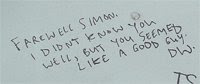 FAREWELL SIMON.
I DIDNT KNOW YOU
WELL, BUT YOU SEEMED
LIKE A GOOD GUY.
DW.
TC